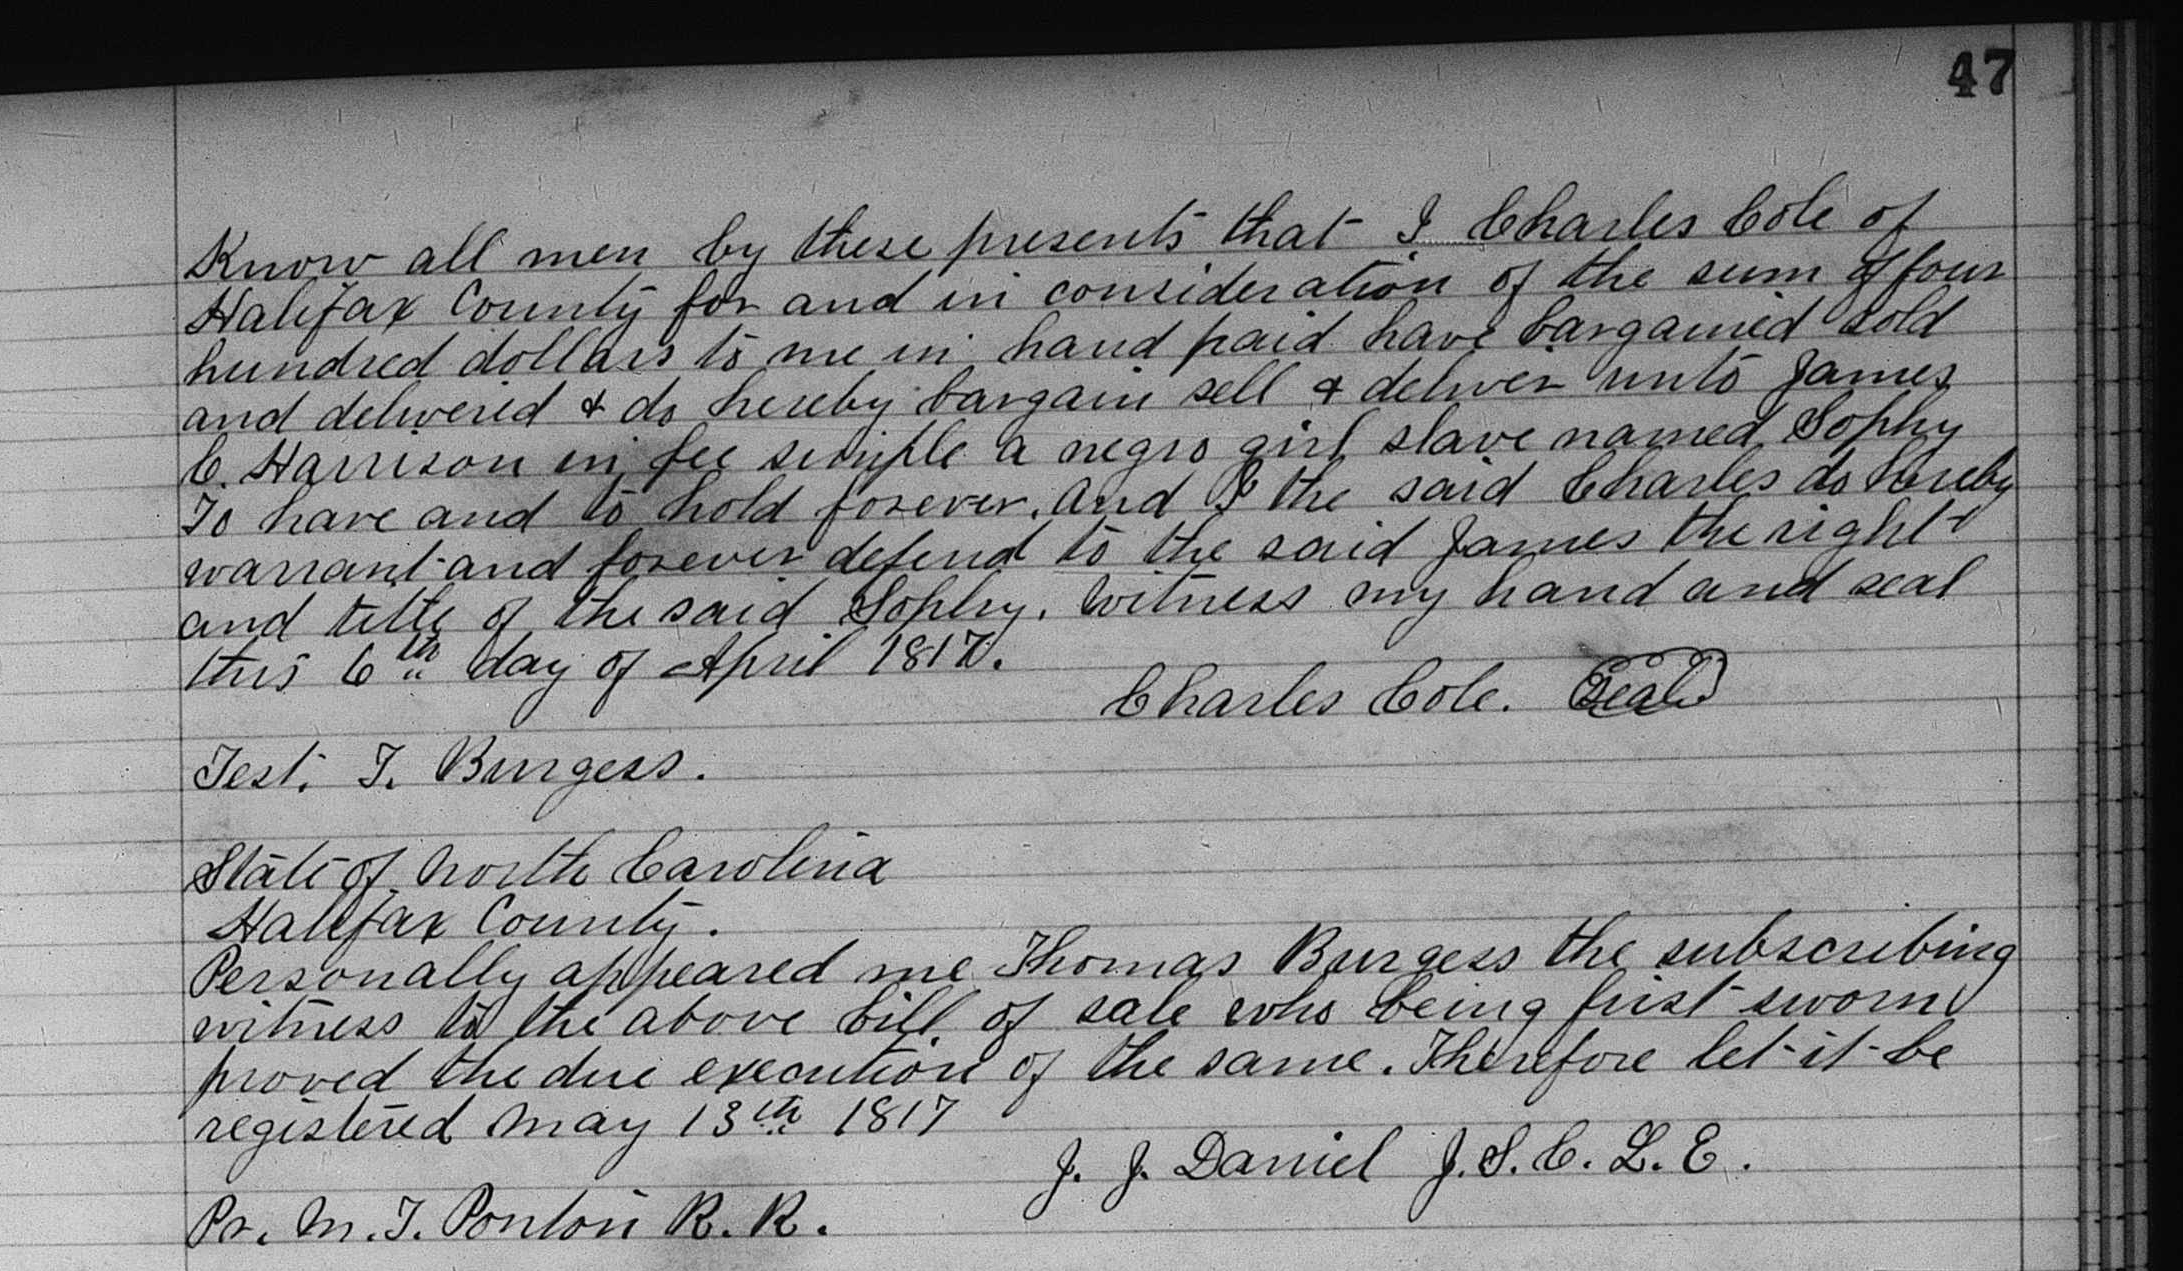 47
Know all men by these presents that I Charles Cole of
Halifax County for and in consideration of the sum of four
hundred dollars to me in hand paid have bargained sold
and delivered & do hereby bargain sell & deliver unto James
C. Harrison in fee simple a negro girl slave named Sophy
To have and to hold forever. And I the said Charles do hereby
warrant and forever defend to the said James the right
and title of the said Sophy. Witness my hand and seal
this 6th day of April 1817.
Charles Cole. Seal
Test. T. Burgess.
State of North Carolina
Halifax County.
Personally appeared me Thomas Burgess the subscribing
witness to the above bill of sale who being first sworn
proved the due execution of the same. Therefore let it be
registered May 13th 1817
J. J. Daniel J. S. C. L. E.
Pr. M. T. Ponton R. R.